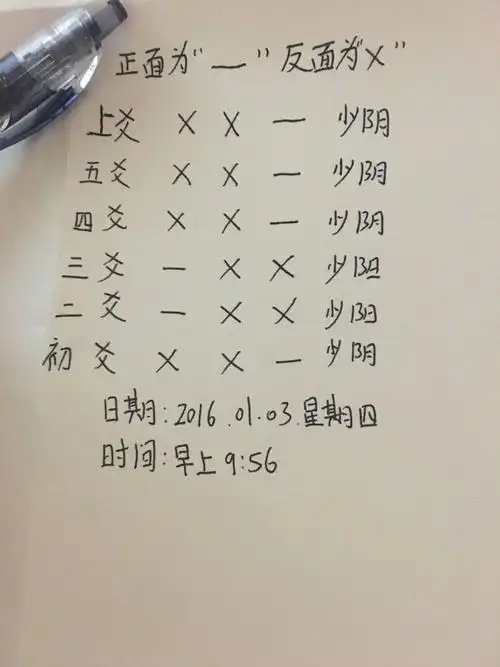 正面为"—"反面为"×"
上爻 × × — 少阴
五爻 × × — 少阴
四爻 × × — 少阴
三爻 — × × 少阳
二爻 — × × 少阳
初爻 × × — 少阴
日期:2016.01.03.星期四
时间:早上9:56